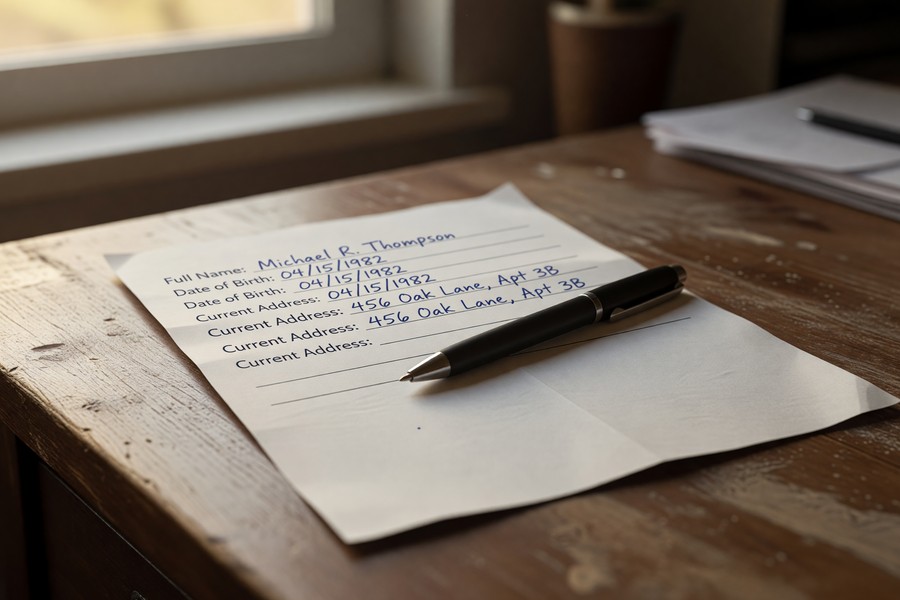 Full Name: Michael R. Thompson
Date of Birth: 04/15/1982
Date of Birth: 04/15/1982
Current Address: 04/15/1982
Current Address: 456 Oak Lane, Apt 3B
Current Address: 456 Oak Lane, Apt 3B
Current Address: